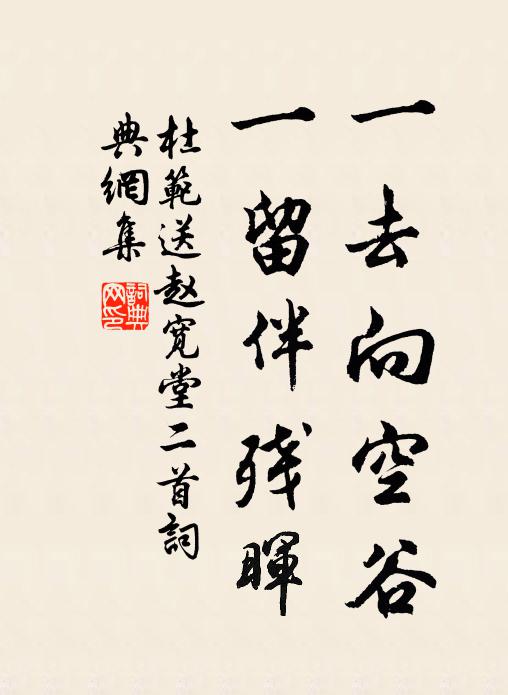 一去向空谷
一留伴残暉
杜範送赵宽堂二首詞
典網集
詞典网印